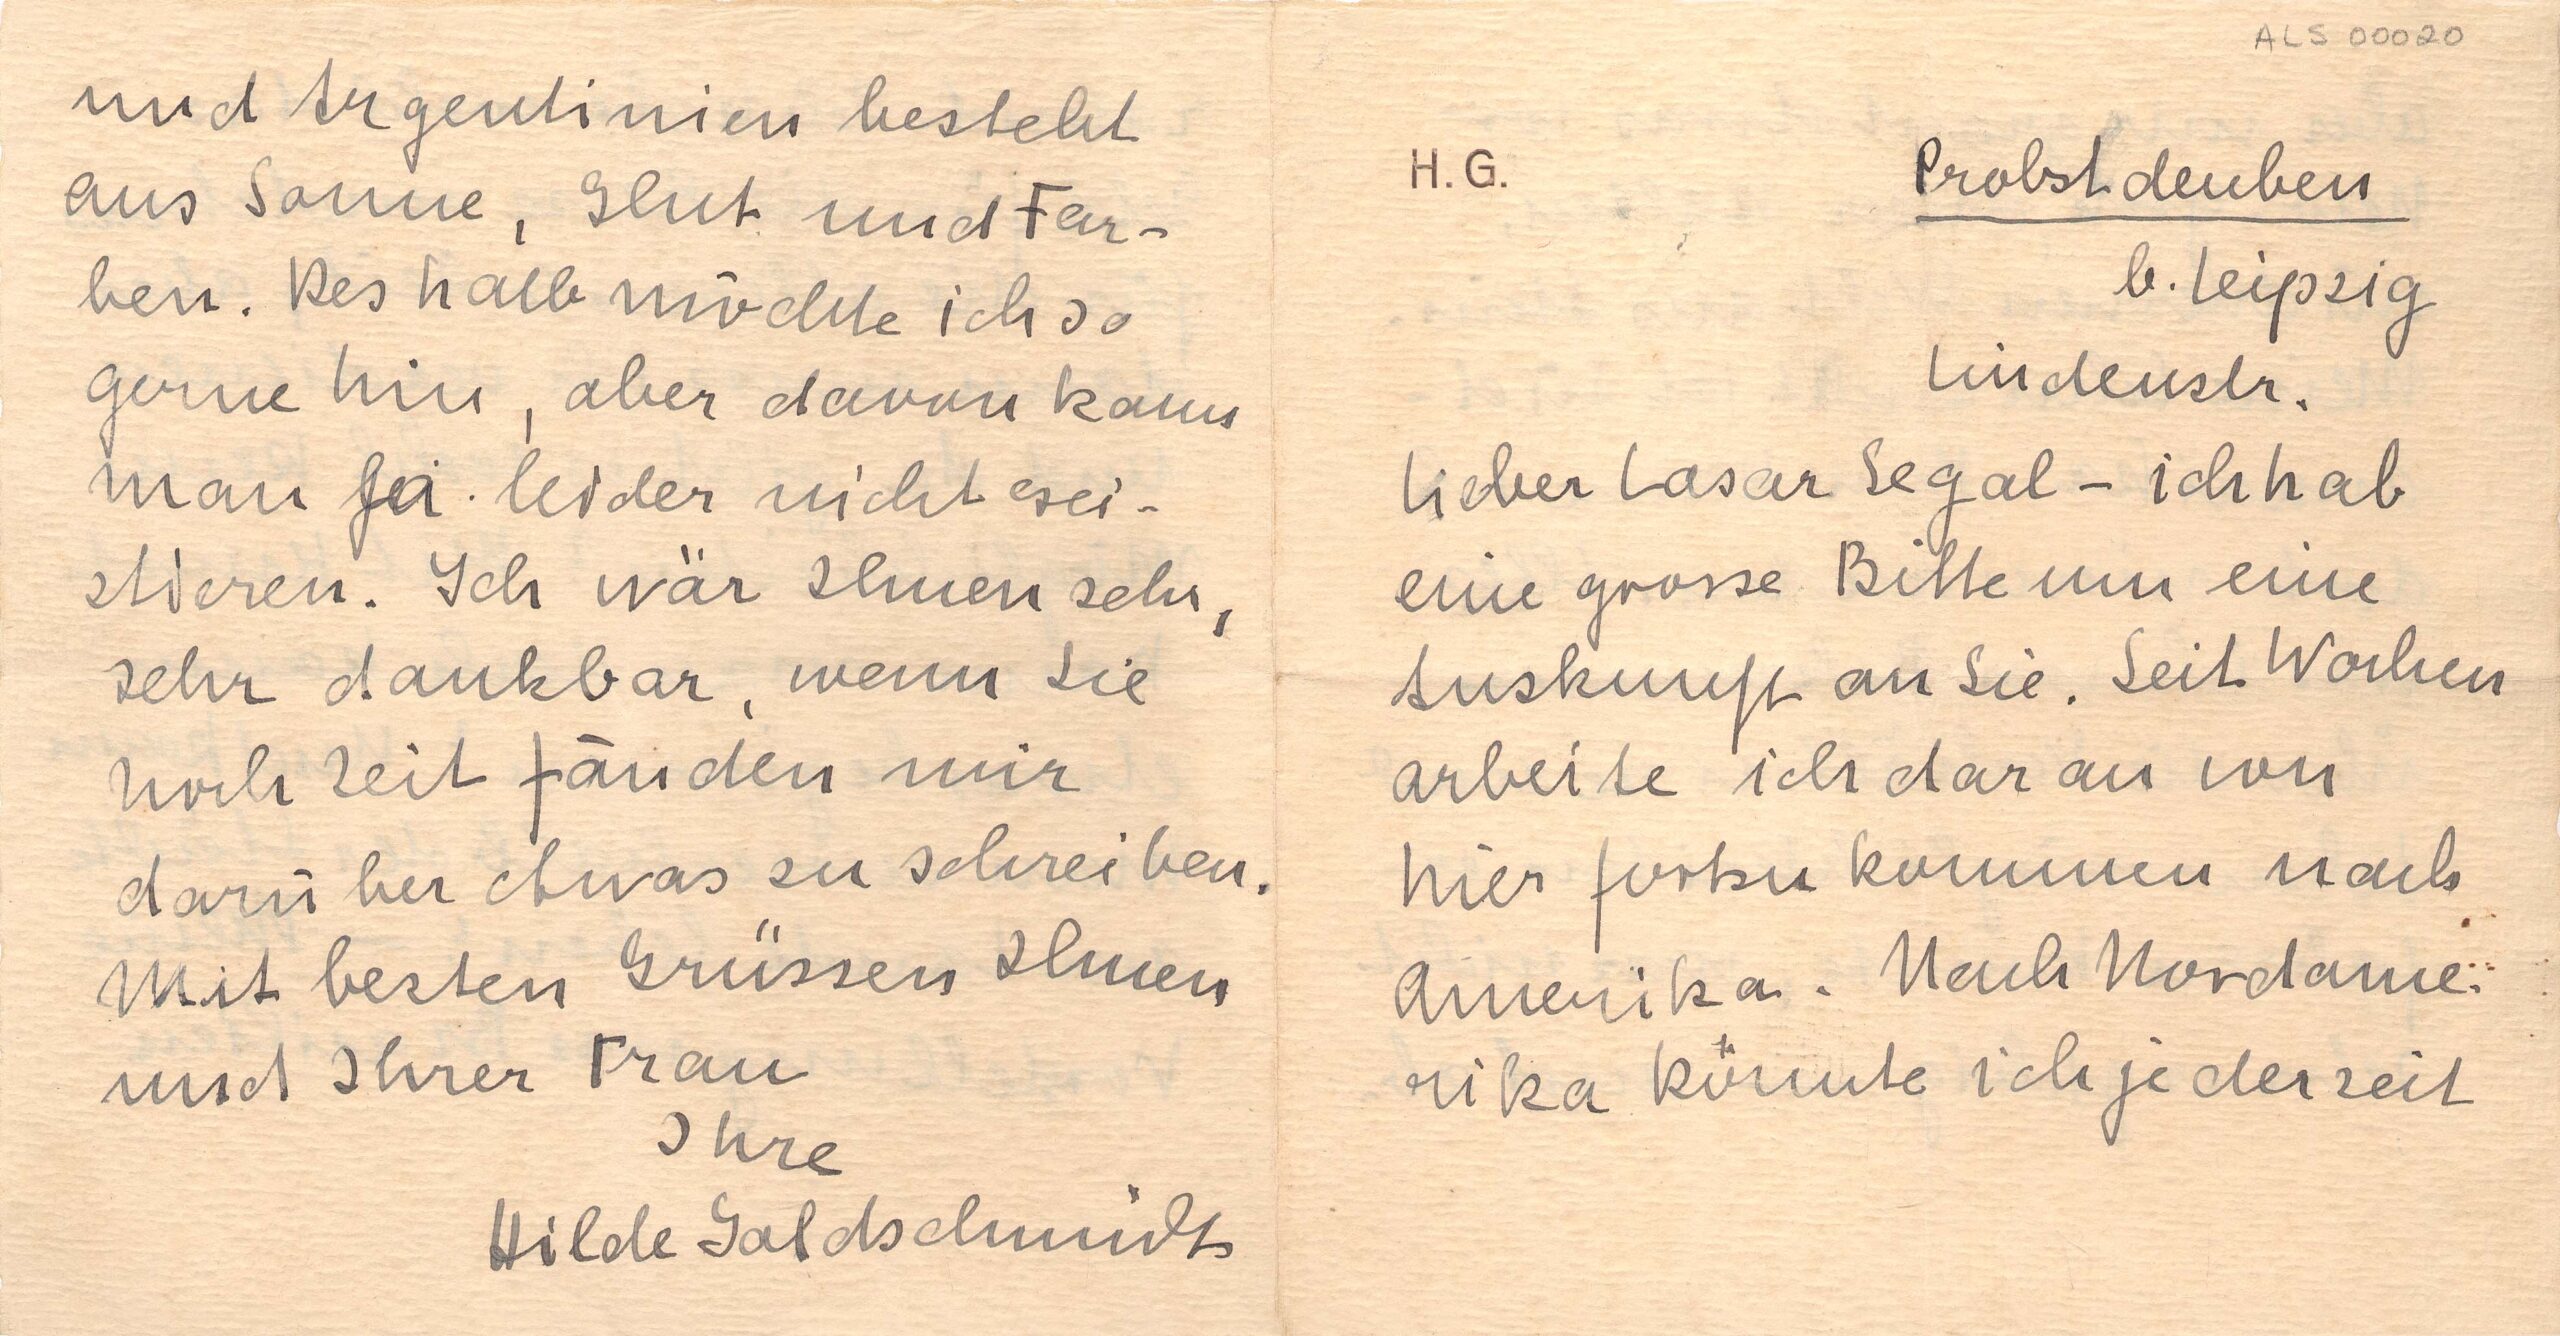 ALS 00020
H.G.
Probstdeuben
b. Leipzig
Lindenstr.
Lieber Lasar Segal – ich hab
eine grosse Bitte um eine
Auskunft an Sie. Seit Wochen
arbeite ich daran von
hier fortzukommen nach
Amerika. Nach Nordame-
rika könnte ich jederzeit
und Argentinien besteht
aus Sonne, Glut und Far-
ben. Deshalb möchte ich so
gerne hin, aber davon kann
man ja leider nicht exi-
stieren. Ich wär Ihnen sehr,
sehr dankbar, wenn Sie
noch Zeit fänden mir
darüber etwas zu schreiben.
Mit besten Grüssen Ihnen
und Ihrer Frau
Ihre
Hilde Goldschmidt